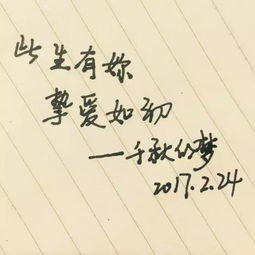 此生有妳
挚爱如初
——千秋的梦
2017.2.24